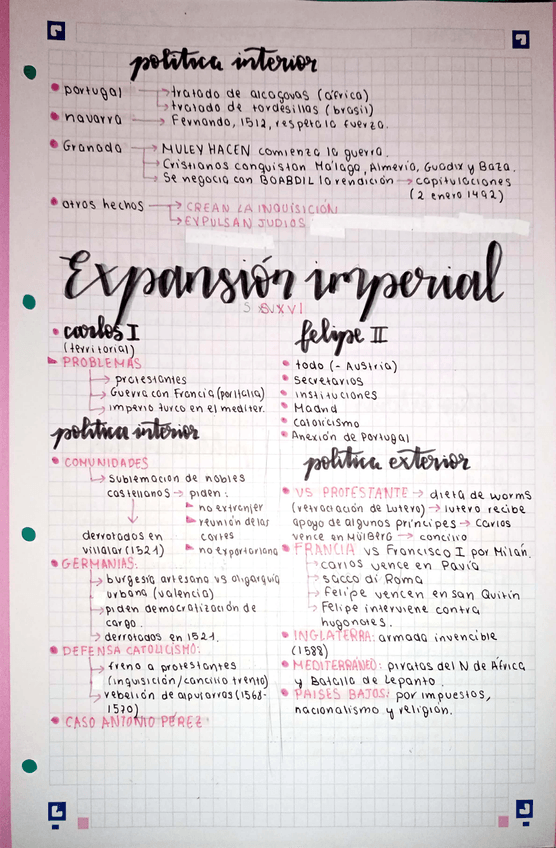 política interior
portugal → tratado de alcaçovas (áfrica)
→ tratado de tordesillas (brasil)
navarra → Fernando, 1512, respeta la fuerza.
Granada → MULEY HACEN comienza la guerra.
→ Cristianos conquistan Málaga, Almería, Guadix y Baza.
→ Se negocia con BOABDIL la rendición → capitulaciones
(2 enero 1492)
otros hechos → CREAN LA INQUISICIÓN
→ EXPULSAN JUDIOS
Expansión imperial
S XVI
carlos I
(territorial)
PROBLEMAS
→ protestantes
→ Guerra con Francia (por Italia)
→ imperio turco en el mediter.
política interior
COMUNIDADES
→ sublemación de nobles
castellanos → piden:
no extranjer
reunión de las
cortes
no exportar lana
derrotados en
villalar (1521)
GERMANIAS:
→ burgesía artesano vs oligarquía
urbana (valencia)
→ piden democratización de
cargo.
→ derrotados en 1521.
DEFENSA CATOLICISMO:
→ freno a protestantes
(inquisición/concilio trento)
→ rebelión de alpujarras (1568-
1570)
CASO ANTONIO PÉREZ:
felipe II
todo (- Austria)
secretarios
instituciones
Madrid
catolicismo
Anexión de Portugal
política exterior
VS PROTESTANTE → dieta de worms
(retractación de lutero) → lutero recibe
apoyo de algunos príncipes → Carlos
vence en Mülberg → concilio
FRANCIA vs Francisco I por Milán.
→ carlos vence en Pavía
→ sacco di Roma
→ Felipe vencen en san Quitín
→ Felipe interviene contra
hugonotes.
INGLATERRA: armada invencible
(1588)
MEDITERRÁNEO: piratas del N de África
y Batalla de Lepanto.
PAISES BAJOS: por impuestos,
nacionalismo y religión.